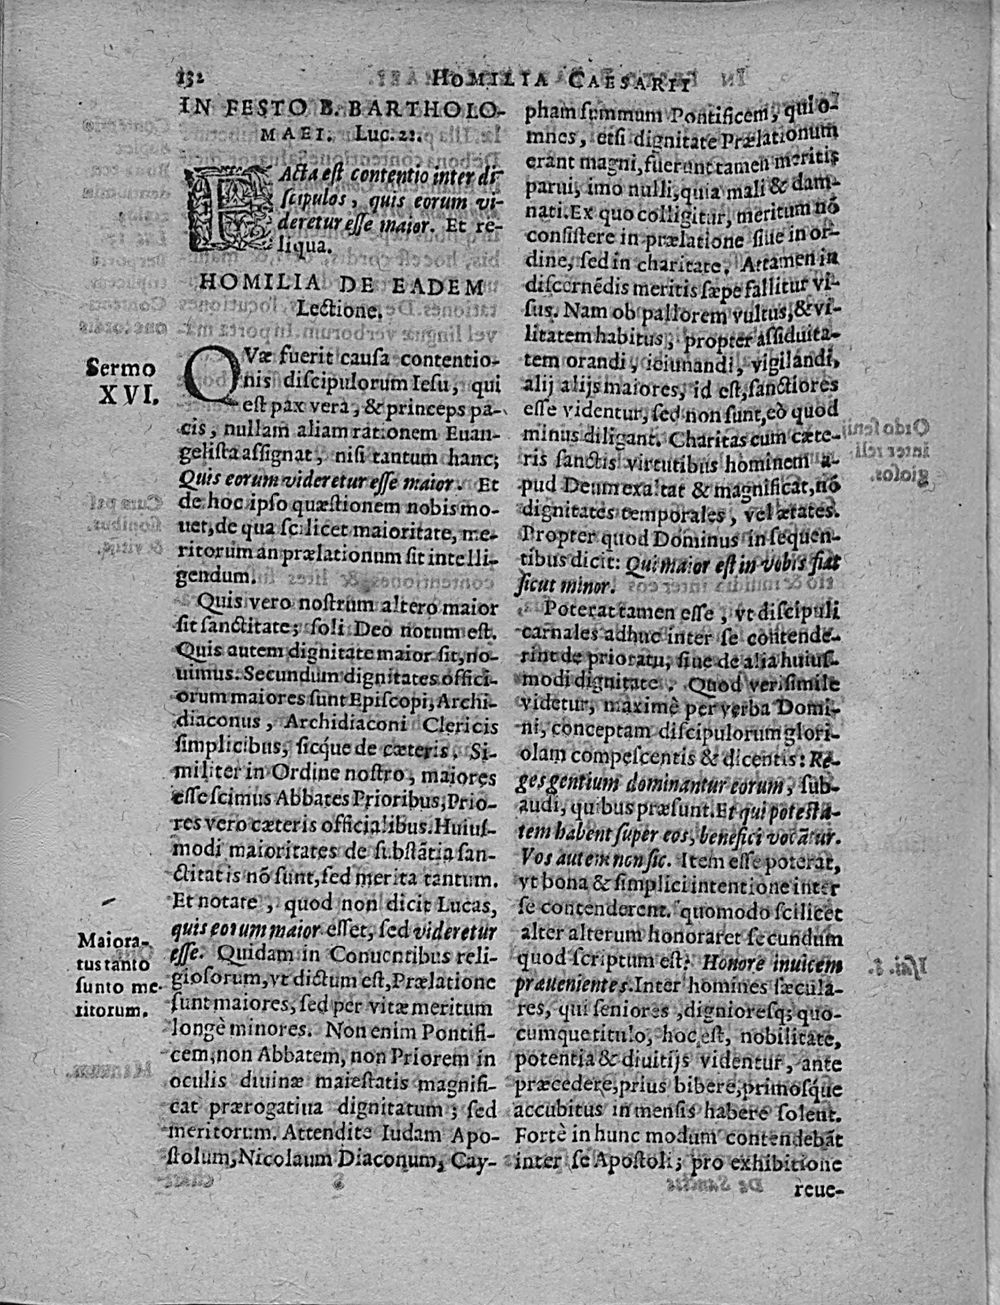 132 HOMILIA CAESARII
IN FESTO B. BARTHOLO-
MAEI. Luc. 22.
FActa est contentio inter di
scipulos, quis eorum vi-
deretur esse maior. Et re-
liqua.
HOMILIA DE EADEM
Lectione.
Sermo
XVI.
QVæ fuerit causa contentio-
nis discipulorum Iesu, qui
est pax vera, & princeps pa-
cis, nullam aliam rationem Euan-
gelista assignat, nisi tantum hanc;
Quis eorum videretur esse maior. Et
de hoc ipso quæstionem nobis mo-
uet, de qua scilicet maioritate, me-
ritorum an prælationum sit intelli-
gendum.
Quis vero nostrum altero maior
sit sanctitate; soli Deo notum est.
Quis autem dignitate maior sit, no-
uimus. Secundum dignitates offici-
orum maiores sunt Episcopi, Archi-
diaconus, Archidiaconi Clericis
simplicibus, sicq́ue de cæteris. Si-
militer in Ordine nostro, maiores
esse scimus Abbates Prioribus, Prio-
res vero cæteris officialibus. Huius-
modi maioritates de substātia san-
ctitatis nō sunt, sed merita tantum.
Et notate, quod non dicit Lucas,
quis eorum maior esset, sed videretur
esse. Quidam in Conuentibus reli-
giosorum, vt dictum est, Prælatione
sunt maiores, sed per vitæ meritum
longè minores. Non enim Pontifi-
cem, non Abbatem, non Priorem in
oculis diuinæ maiestatis magnifi-
cat prærogatiua dignitatum; sed
meritorum. Attendite Iudam Apo-
stolum, Nicolaum Diaconum, Cay-
Maiora-
tus tanto
sunto me-
ritorum.
pham summum Pontificem, qui o-
mnes, etsi dignitate Prælationum
erant magni, fuerunt tamen meritis
parui; imo nulli, quia mali & dam-
nati. Ex quo colligitur, meritum nō
consistere in prælatione siue in or-
dine, sed in charitate. Attamen in
discernēdis meritis sæpe fallitur vi-
sus. Nam ob pallorem vultus, & vi-
litatem habitus, propter assiduita-
tem orandi, ieiunandi, vigilādi,
alij alijs maiores, id est, sanctiores
esse videntur, sed non sunt, eò quod
minus diligant. Charitas cum cæte-
ris sanctis virtutibus hominem a-
pud Deum exaltat & magnificat, nō
dignitates temporales, vel ætates.
Propter quod Dominus in sequen-
tibus dicit: Qui maior est in vobis fiat
sicut minor.
Poterat tamen esse, vt discipuli
carnales adhuc inter se contende-
rint de prioratu, siue de alia huius-
modi dignitate. Quod verisimile
videtur, maximè per verba Domi-
ni, conceptam discipulorum glori-
olam compescentis & dicentis: Re-
ges gentium dominantur eorum, sub-
audi, quibus præsunt. Et qui potesta-
tem habent super eos, benefici vocātur.
Vos autem non sic. Item esse poterat,
vt bona & simplici intentione inter
se contenderent. quomodo scilicet
alter alterum honoraret secundum
quod scriptum est: Honore inuicem
præuenientes. Inter homines sæcula-
res, qui seniores, digniores​q; quo-
cumque titulo, hoc est, nobilitate,
potentia & diuitijs videntur, ante
præcedere, prius bibere, primosq́ue
accubitus in mensis habere solent.
Fortè in hunc modum contendebāt
inter se Apostoli; pro exhibitione
reue-